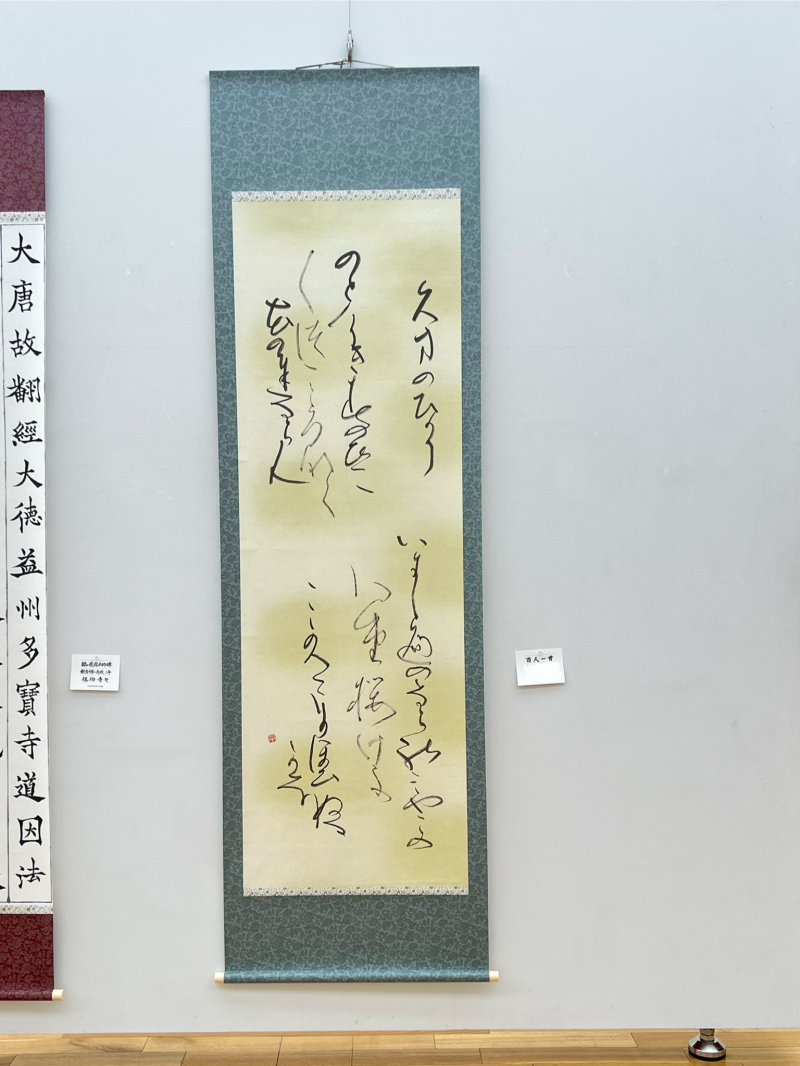 久方のひかり
のとけき春のひに
しつこころなく
花の ちるらん
いにしへのならのみやこの
八重桜けふ
ここのへににほひぬる
かな
百人一首
大唐故翻經大德益州多寶寺道因法